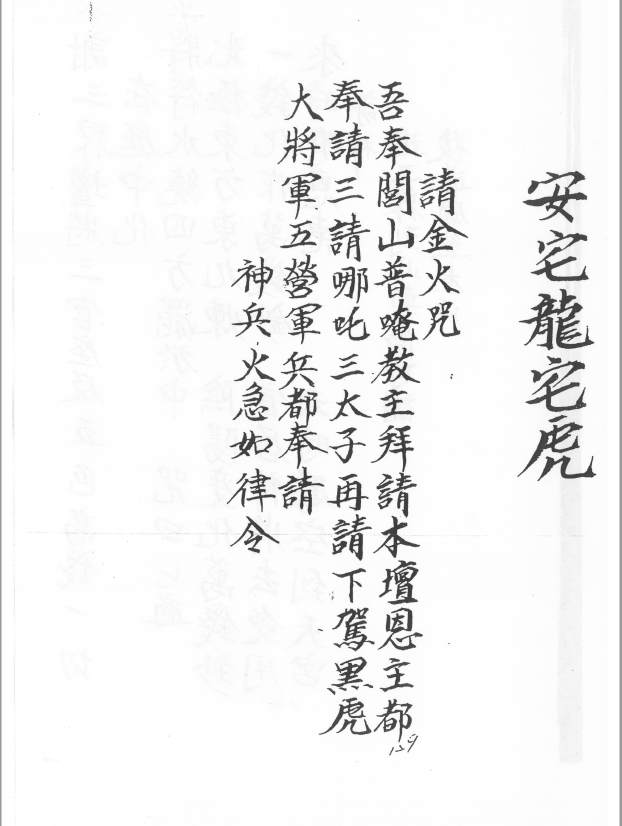 安宅龍宅虎
請金火咒
吾奉閭山普唵教主拜請本壇恩主都
奉請三請哪吒三太子再請下駕黑虎
大將軍五營軍兵都奉請
神兵火急如律令
129